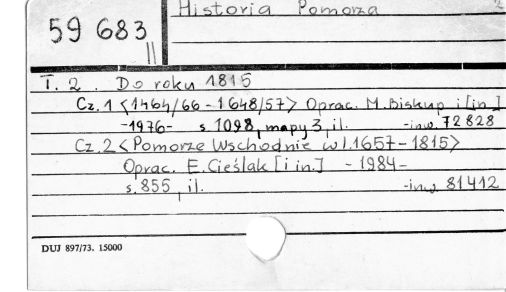 Historia Pomorza 2
59 683
II
T. 2. Do roku 1815
Cz. 1 <1464/66 - 1648/57> Oprac. M. Biskup i [in.]
-1976- s. 1098, mapy 3, il. -inw. 72 828
Cz. 2 <Pomorze Wschodnie w l. 1657-1815>
Oprac. E. Cieślak [i in.] - 1984-
s. 855, il. -inw. 81412
DUJ 897/73. 15000